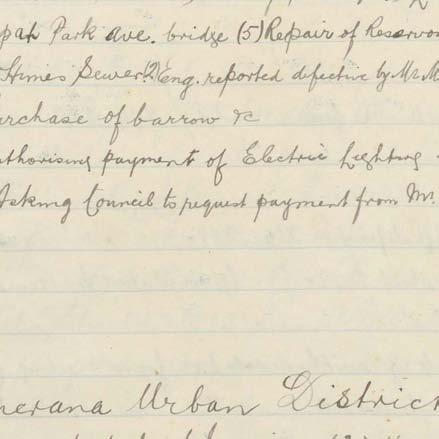 Park Ave. bridge (5) Repair of Reservo
Himes Sewer (2) Eng. reported defective by Mr. M
urchase of barrow &c
uthorising payment of Electric Lighting
Asking Council to request payment from Mr.
merana Urban District